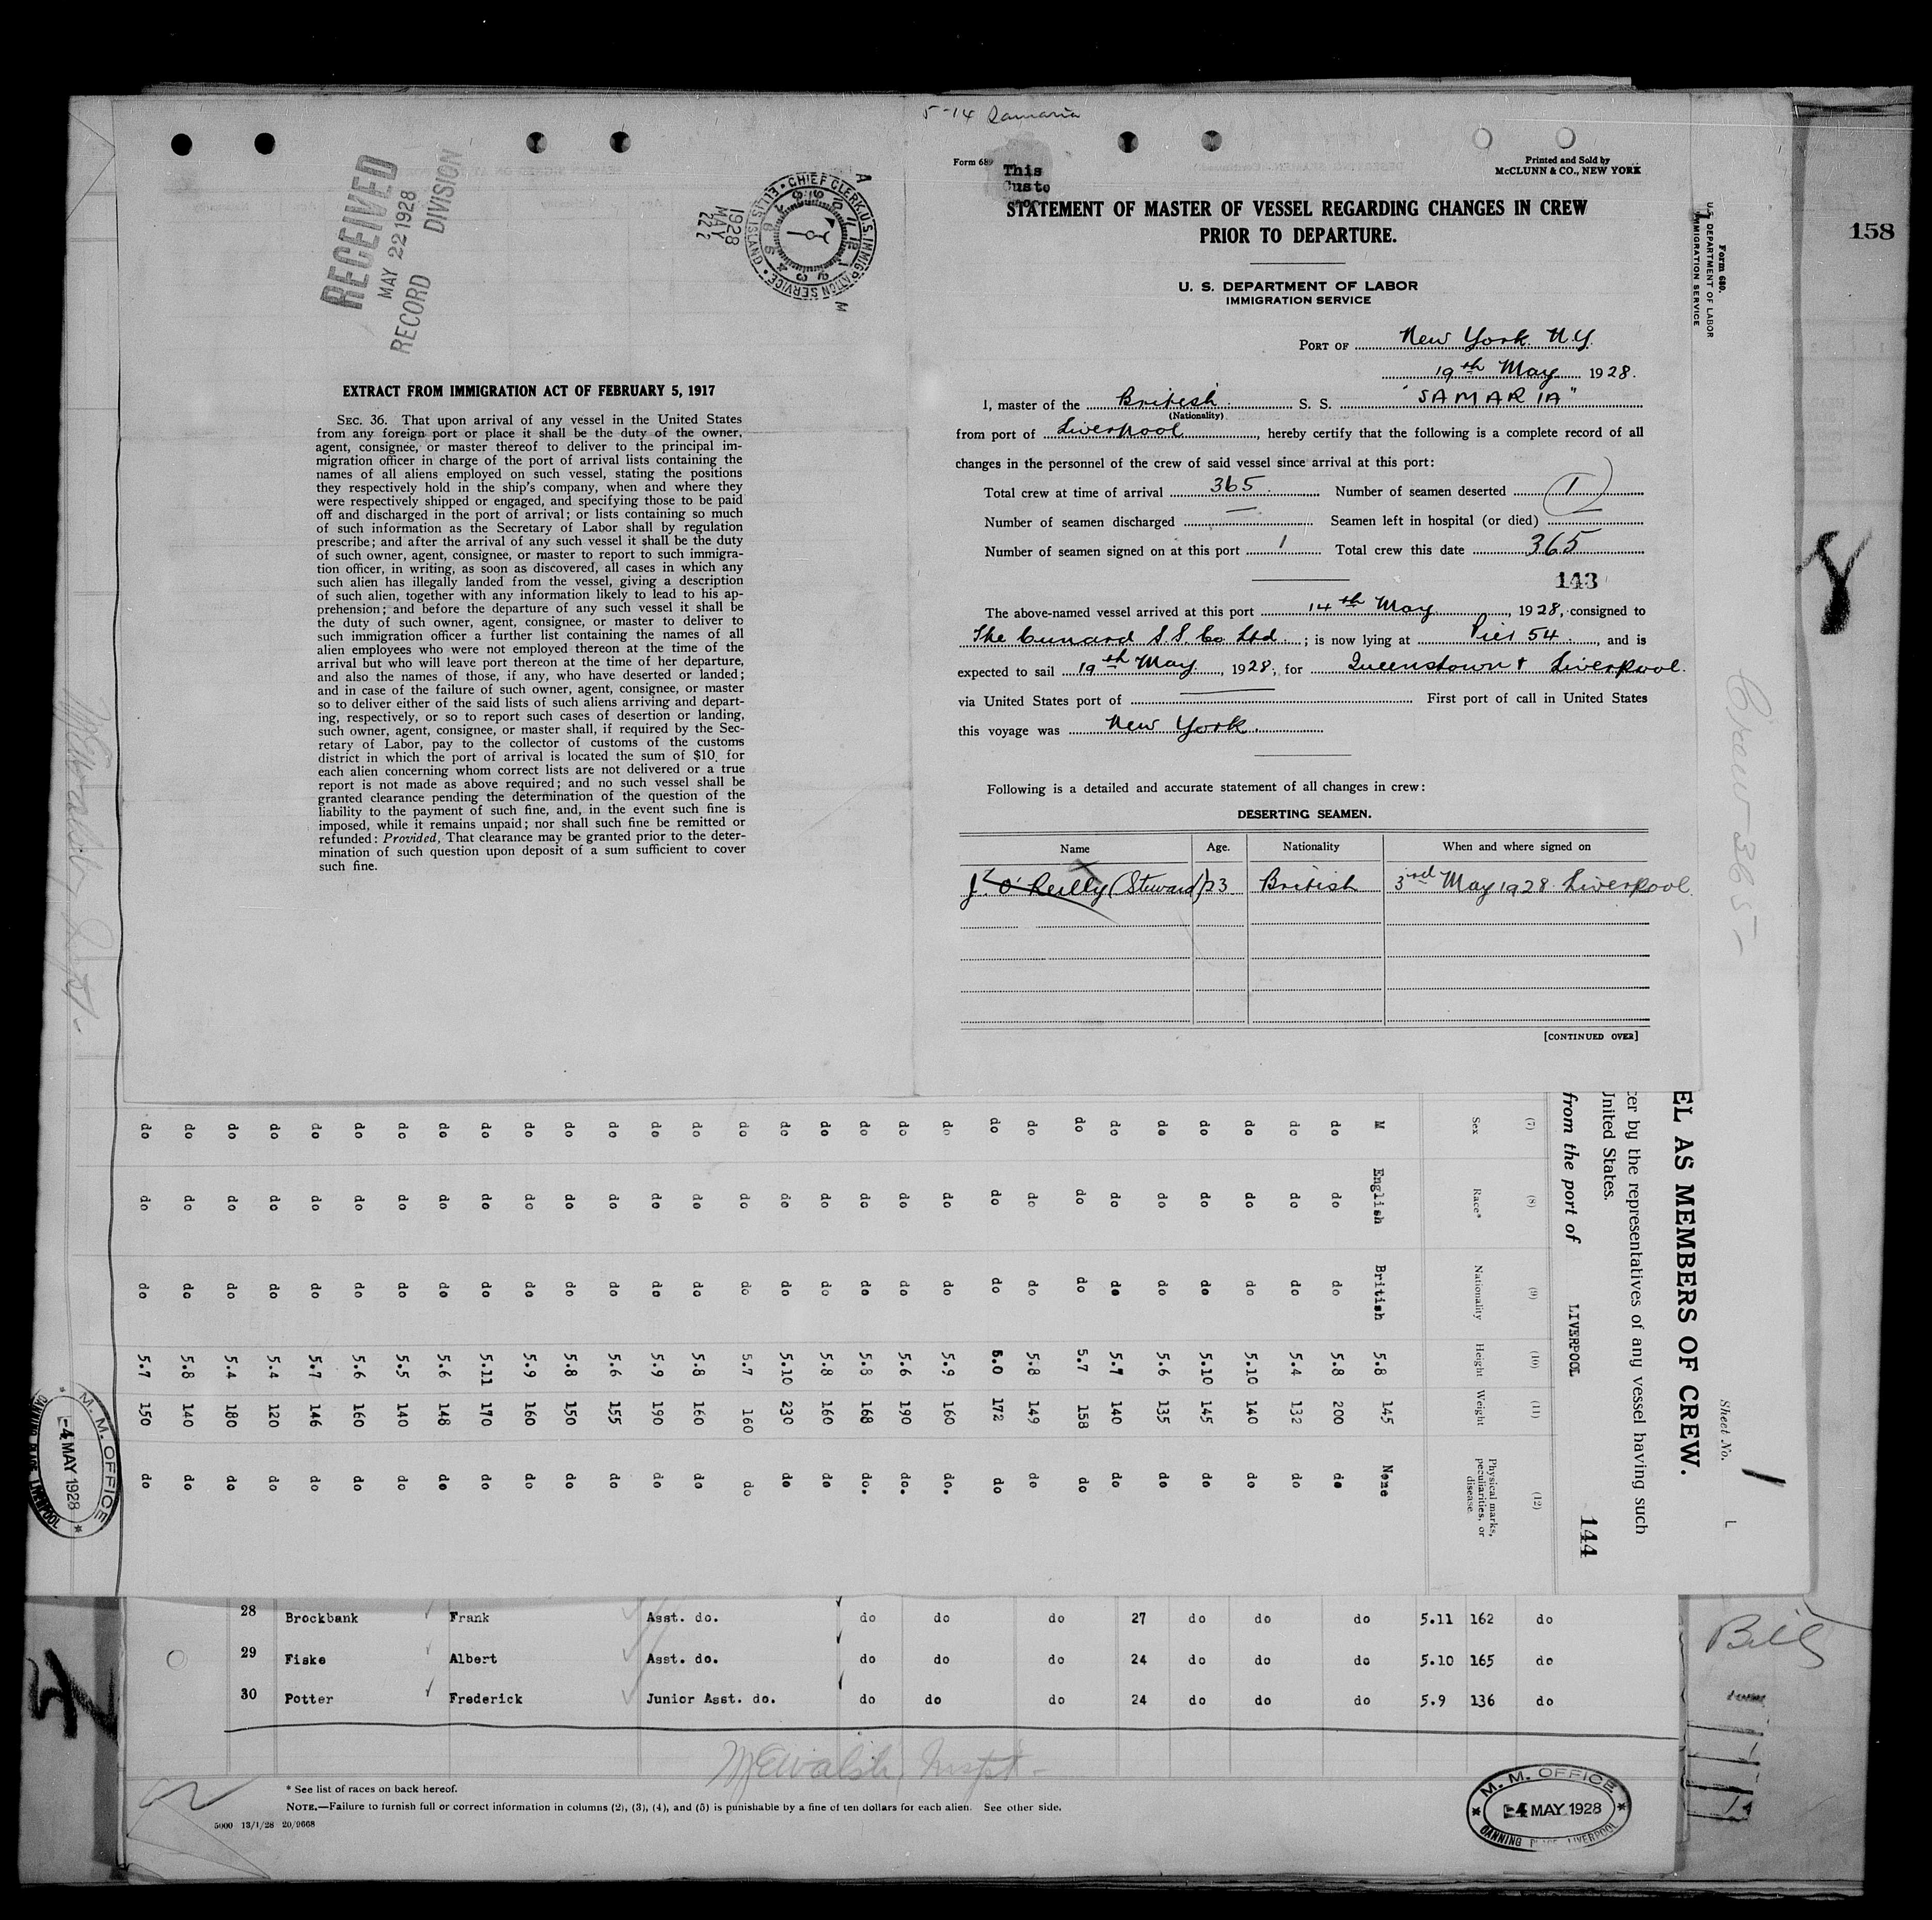 5-14 Samaria
RECEIVED
MAY 22 1928
RECORD DIVISION
CHIEF CLERK, U.S. IMMIGRATION SERVICE • ELLIS ISLAND •
1928
MAY
22
A
M
EXTRACT FROM IMMIGRATION ACT OF FEBRUARY 5, 1917
SEC. 36. That upon arrival of any vessel in the United States
from any foreign port or place it shall be the duty of the owner,
agent, consignee, or master thereof to deliver to the principal im-
migration officer in charge of the port of arrival lists containing the
names of all aliens employed on such vessel, stating the positions
they respectively hold in the ship's company, when and where they
were respectively shipped or engaged, and specifying those to be paid
off and discharged in the port of arrival; or lists containing so much
of such information as the Secretary of Labor shall by regulation
prescribe; and after the arrival of any such vessel it shall be the duty
of such owner, agent, consignee, or master to report to such immigra-
tion officer, in writing, as soon as discovered, all cases in which any
such alien has illegally landed from the vessel, giving a description
of such alien, together with any information likely to lead to his ap-
prehension; and before the departure of any such vessel it shall be
the duty of such owner, agent, consignee, or master to deliver to
such immigration officer a further list containing the names of all
alien employees who were not employed thereon at the time of the
arrival but who will leave port thereon at the time of her departure,
and also the names of those, if any, who have deserted or landed;
and in case of the failure of such owner, agent, consignee, or master
so to deliver either of the said lists of such aliens arriving and depart-
ing, respectively, or so to report such cases of desertion or landing,
such owner, agent, consignee, or master shall, if required by the Sec-
retary of Labor, pay to the collector of customs of the customs
district in which the port of arrival is located the sum of $10 for
each alien concerning whom correct lists are not delivered or a true
report is not made as above required; and no such vessel shall be
granted clearance pending the determination of the question of the
liability to the payment of such fine, and, in the event such fine is
imposed, while it remains unpaid; nor shall such fine be remitted or
refunded: Provided, That clearance may be granted prior to the deter-
mination of such question upon deposit of a sum sufficient to cover
such fine.
Form 689
This
Custo
Printed and Sold by
McCLUNN & CO., NEW YORK
STATEMENT OF MASTER OF VESSEL REGARDING CHANGES IN CREW
PRIOR TO DEPARTURE.
U. S. DEPARTMENT OF LABOR
IMMIGRATION SERVICE
PORT OF New York N.Y.
19th May 1928.
I, master of the British S. S. "SAMARIA"
(Nationality)
from port of Liverpool, hereby certify that the following is a complete record of all
changes in the personnel of the crew of said vessel since arrival at this port:
Total crew at time of arrival 365 Number of seamen deserted 1
Number of seamen discharged — Seamen left in hospital (or died) —
Number of seamen signed on at this port 1 Total crew this date 365
143
The above-named vessel arrived at this port 14th May, 1928, consigned to
The Cunard S.S. Co Ltd; is now lying at Pier 54, and is
expected to sail 19th May, 1928, for Queenstown & Liverpool.
via United States port of — First port of call in United States
this voyage was New York.
Following is a detailed and accurate statement of all changes in crew:
DESERTING SEAMEN.
Name Age. Nationality When and where signed on
J. O'Reilly (Steward) 23 British 3rd May 1928 Liverpool
[CONTINUED OVER]
Form 680.
U.S. DEPARTMENT OF LABOR
IMMIGRATION SERVICE
158
8
Crew 365 -
Sheet No. 1
EL AS MEMBERS OF CREW.
cer by the representatives of any vessel having such
United States.
from the port of LIVERPOOL
144
(7) (8) (9) (10) (11) (12)
Sex Race* Nationality Height Weight Physical marks, peculiarities, or disease.
M English British 5.8 145 None
do do do 5.8 200 do
do do do 5.4 132 do
do do do 5.10 140 do
do do do 5.10 145 do
do do do 5.6 135 do
do do do 5.7 140 do
do do do 5.7 158 do
do do do 5.8 149 do
do do do 5.0 172 do
do do do 5.9 160 do.
do do do 5.6 190 do.
do do do 5.8 168 do.
do do do 5.8 160 do
do do do 5.10 230 do
do do do 5.7 160 do
do do do 5.8 160 do
do do do 5.9 190 do
do do do 5.6 155 do
do do do 5.8 150 do
do do do 5.9 160 do
do do do 5.11 170 do
do do do 5.6 148 do
do do do 5.5 140 do
do do do 5.6 160 do
do do do 5.7 146 do
do do do 5.4 120 do
do do do 5.4 180 do
do do do 5.8 140 do
do do do 5.7 150 do
M. M. OFFICE
-4 MAY 1928
CANNING PLACE LIVERPOOL
28 Brockbank Frank Asst. do. do do do 27 do do do 5.11 162 do
29 Fiske Albert Asst. do. do do do 24 do do do 5.10 165 do
30 Potter Frederick Junior Asst. do. do do do 24 do do do 5.9 136 do
McEwalsh, Inspt -
* See list of races on back hereof.
NOTE.—Failure to furnish full or correct information in columns (2), (3), (4), and (5) is punishable by a fine of ten dollars for each alien. See other side.
5000 13/1/28 20/9668
M. M. OFFICE
-4 MAY 1928
CANNING PLACE LIVERPOOL